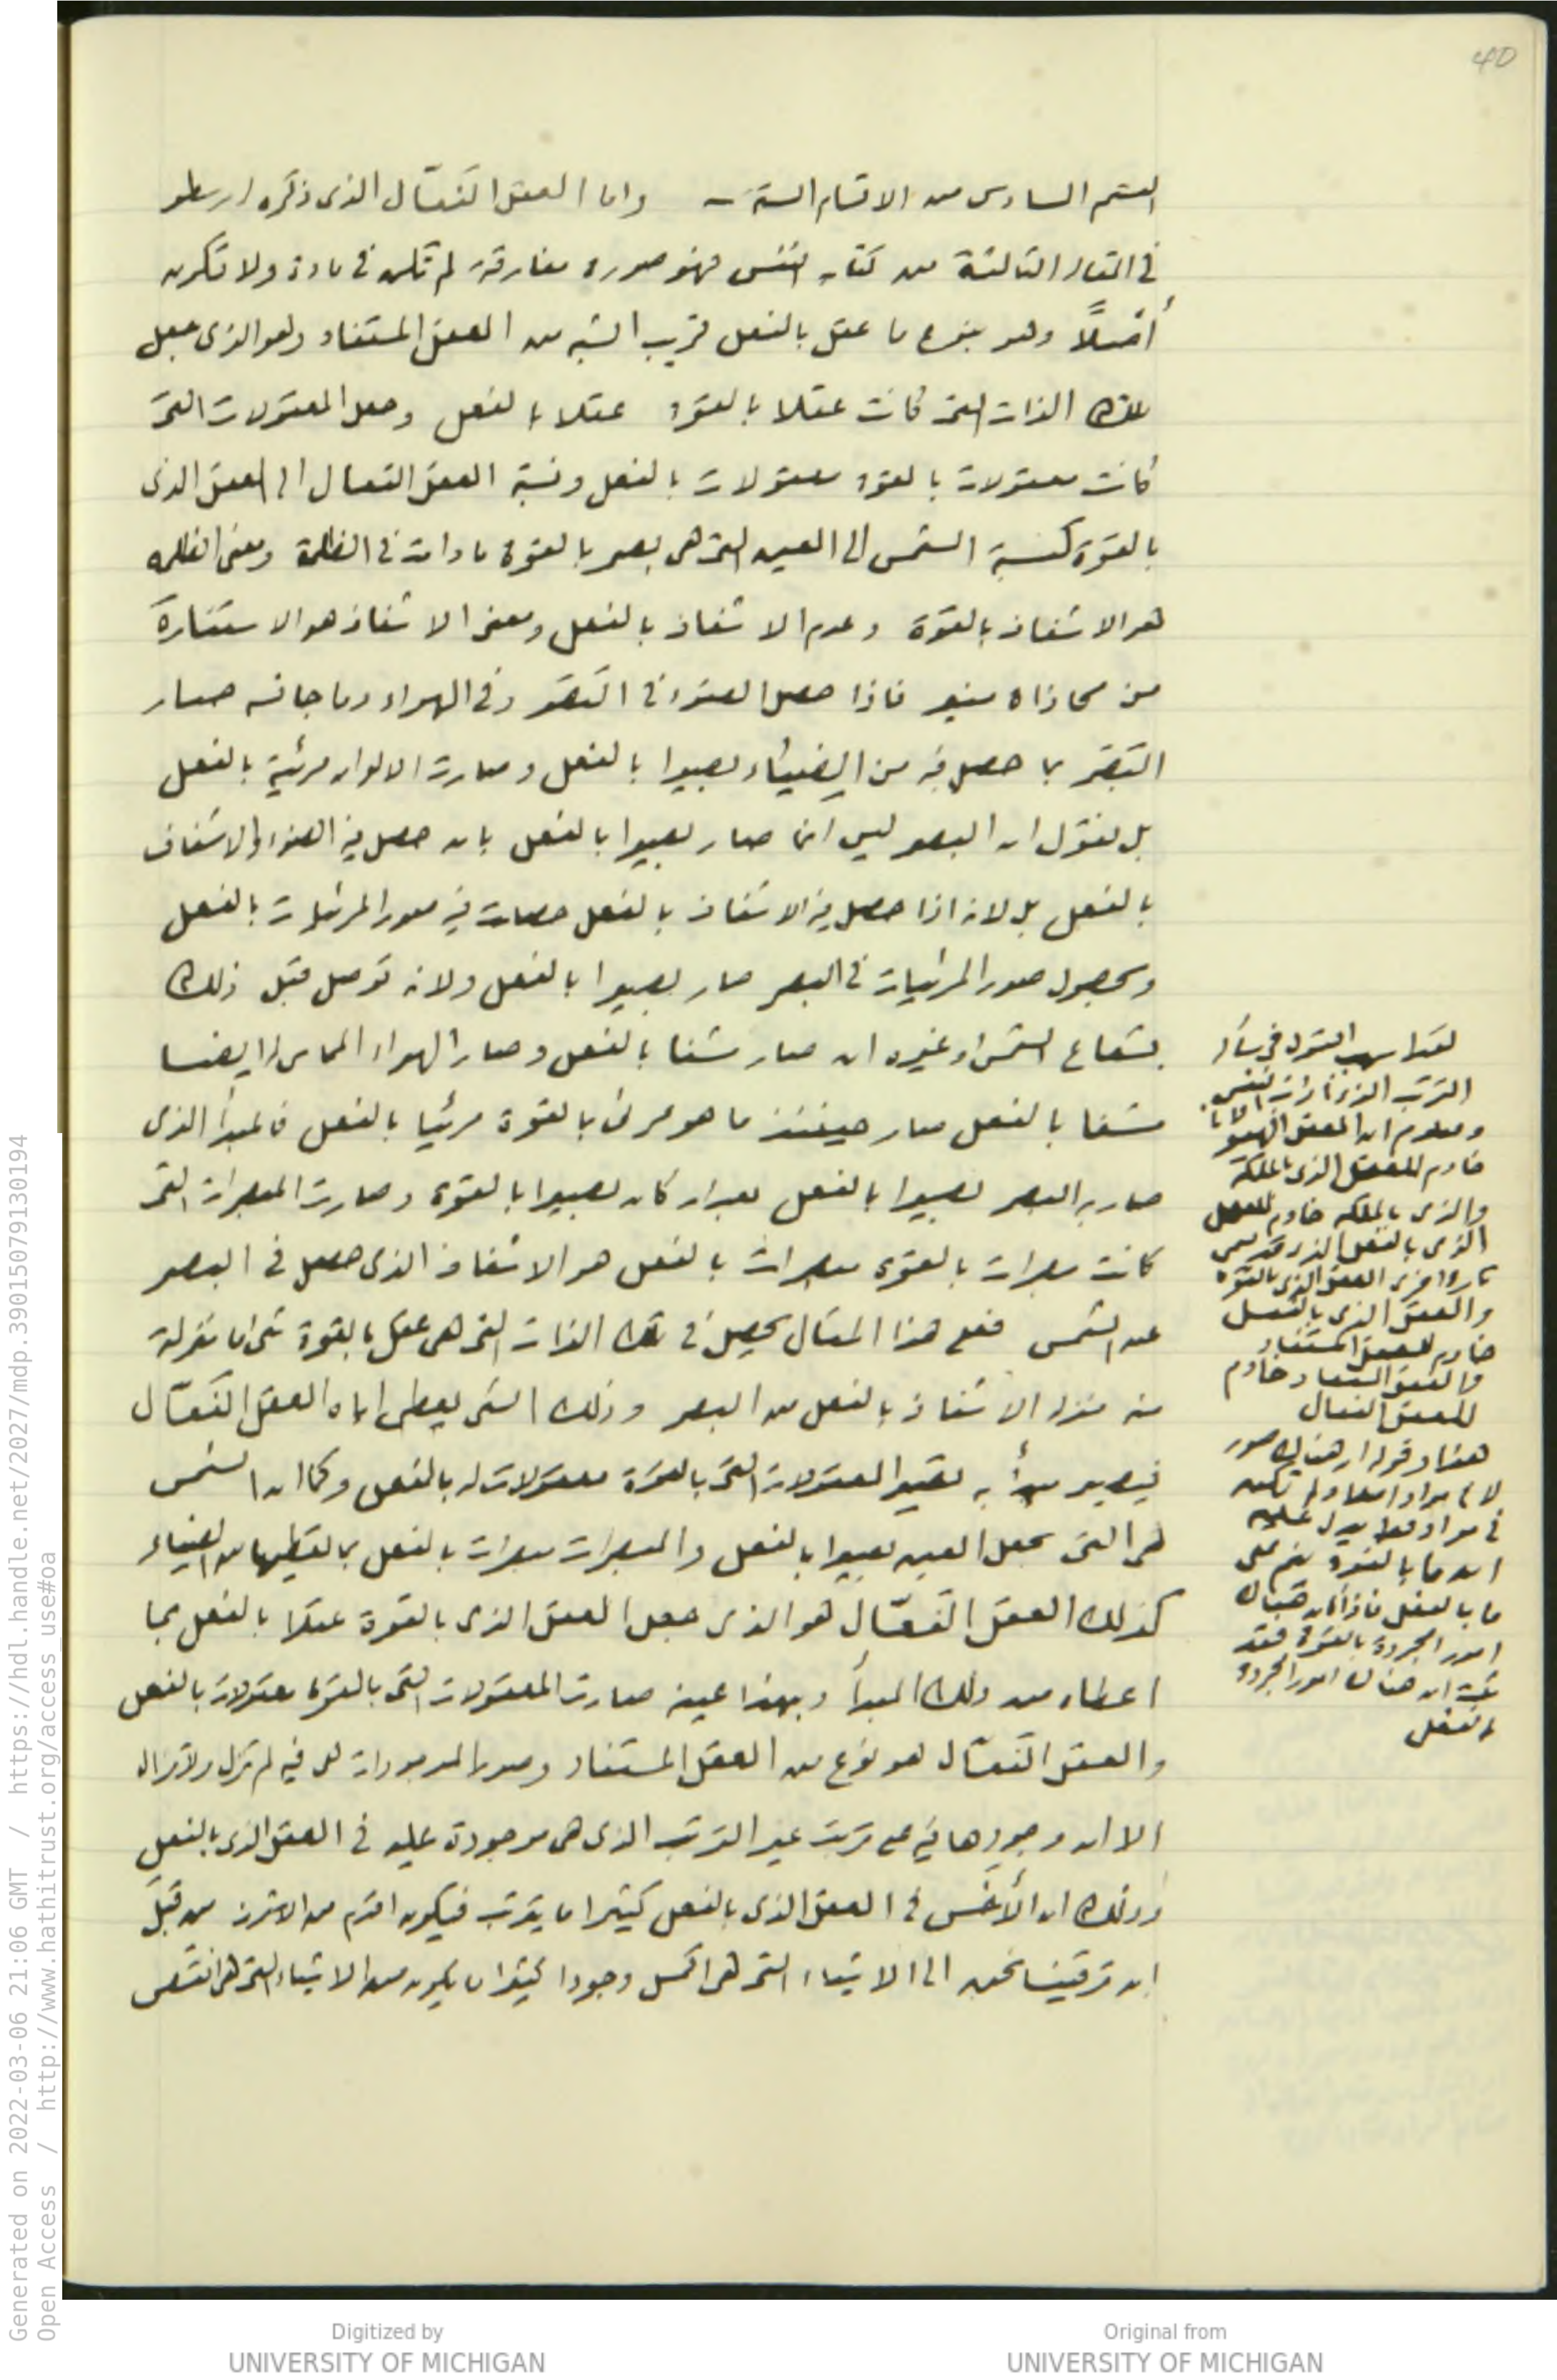 40
القسم السادس من الاقسام الستة - واما العقل الفعّال الذى ذكره ارسطو
فى المقالة الثالثة من كتاب النفس فهو صورة مفارقة لم تكن فى مادة ولا تكون
أصلاً وهو بنوع ما عقل بالفعل قريب الشبه من العقل المستفاد وهو الذى جعل
تلك الذات التى كانت عقلا بالقوة عقلا بالفعل وجعل المعقولات التى
كانت معقولات بالقوة معقولات بالفعل ونسبة العقل الفعال الى العقل الذى
بالقوة كنسبة الشمس الى العين التى هى بصر بالقوة ما دامت فى الظلمة ومعنى الظلمه
هو الاشفاف بالقوة وعدم الاشفاف بالفعل ومعنى الاشفاف هو الاستنارة
من محاذاة منير فاذا حصل الضوء فى البصر وفى الهواء وما جانسه صار
البصر بما حصل فيه من الضياء بصيرا بالفعل وصارت الالوان مرئية بالفعل
بل نقول ان البصر ليس انما صار بصيرا بالفعل بان حصل فيه الضوء والاشفاف
بالفعل بل لانه اذا حصل فيه الاشفاف بالفعل حصلت فيه صور المرئيات بالفعل
وبحصول صور المرئيات فى البصر صار بصيرا بالفعل ولانه توصل قبل ذلك
بشعاع الشمس او غيره ان صار مشفا بالفعل وصار الهواء المماس له ايضا
مشفا بالفعل صار حينئذ ما هو مرئى بالقوة مرئيا بالفعل فالمبدأ الذى
صار به البصر بصيرا بالفعل بعد ان كان بصيرا بالقوة وصارت المبصرات التى
كانت مبصرات بالقوة مبصرات بالفعل هو الاشفاف الذى حصل فى البصر
عن الشمس فعلى هذا المثال يحصل فى تلك الذات التى هى عقل بالقوة شئ ما منزلته
منه منزلة الاشفاف بالفعل من البصر وذلك الشئ يعطى اياه العقل الفعّال
فيصير مبدأ به تصير المعقولات التى بالقوة معقولات له بالفعل وكما ان الشمس
هى التى تجعل العين بصيرا بالفعل والمبصرات مبصرات بالفعل بما تعطيها من الضياء
كذلك العقل الفعّال هو الذى جعل العقل الذى بالقوة عقلا بالفعل بما
اعطاه من ذلك المبدأ وبهذا عينه صارت المعقولات التى بالقوة معقولات بالفعل
والعقل الفعّال هو نوع من العقل المستفاد وصور الموجودات هى فيه لم تزل ولا تزال
الا ان وجودها فيه على ترتيب غير الترتيب الذى هى موجودة عليه فى العقل الذى بالفعل
وذلك ان الأخس فى العقل الذى بالفعل كثيرا ما يترتب فيكون اقدم من الاشرف من قبل
ان ترقينا نحن الى الاشياء التى هى اكمل وجودا كثيرا ما يكون من الاشياء التى هى انقص
لقد اسهب القول فى بيان
الترتيب الذى
ومعلوم ان العقل الهيولانى
خادم للعقل الذى بالملكة
والذى بالملكه خادم للعقل
الذى بالفعل الذى قد يسمى
العقل الذى بالقوه
والعقل الذى بالفعل
خادم للعقل المستفاد
والعقل المستفاد خادم
للعقل الفعال
هذا وقوله ان هناك صور
لا فى مواد اصلا ولم تكن
فى مواد فقط يدل على
ان ما بالقوة
ما بالفعل فاذا كان هناك
امور مجردة بالقوة فقد
ثبت ان هناك امور مجردة
بالفعل
Generated on 2022-03-06 21:06 GMT / https://hdl.handle.net/2027/mdp.39015079130194
Open Access / http://www.hathitrust.org/access_use#oa
Digitized by
UNIVERSITY OF MICHIGAN
Original from
UNIVERSITY OF MICHIGAN